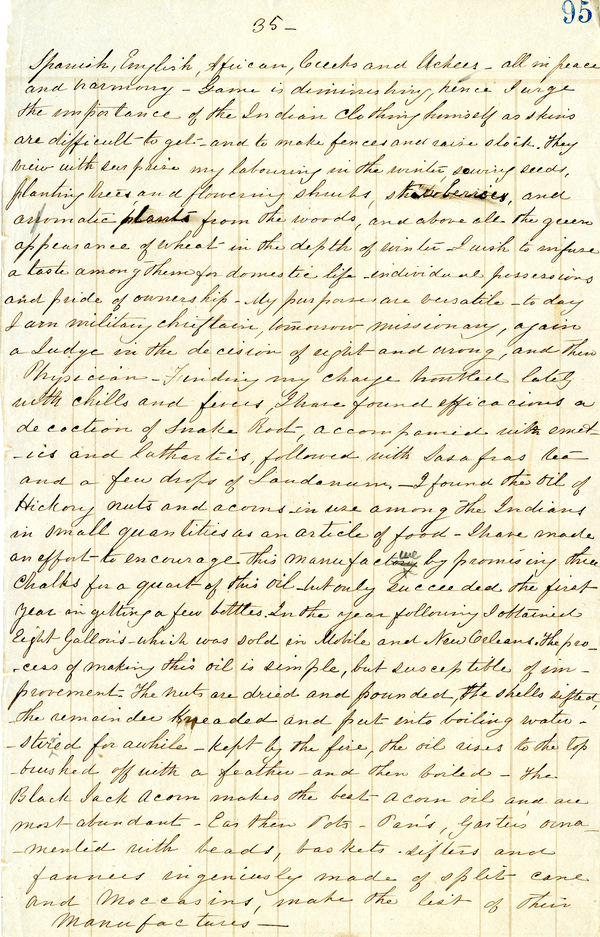 35-
95
Spanish, English, African, Creeks and Uchees - all in peace
and harmony - Game is diminishing, hence I urge
the importance of the Indian clothing himself as skins
are difficult to get - and to make fences and raise stock. They
view with surprise my labouring in the winter, sowing seeds,
planting trees, and flowering shrubs, strawberries, and
aromatic plants from the woods, and above all the green
appearance of wheat in the depth of winter - I wish to infuse
a taste among them for domestic life - individual possessions
and pride of ownership - My purposes are versatile - to day
I am military chieftain, tomorrow missionary, again
a Judge in the decision of right and wrong, and then
Physician - Finding my charge troubled lately
with chills and fevers, I have found efficacious a
decoction of Snake Root, accompanied with emet-
-ics and Cathartics, followed with Sasafras tea
and a few drops of Laudanum. - I found the oil of
Hickory nuts and acorns in use among the Indians
in small quantities as an article of food - I have made
an effort to encourage this manufacture by promising three
Chalks for a quart of this oil - but only succeeded the first
year in getting a few bottles. In the year following I obtained
Eight Gallons - which was sold in Mobile and New Orleans. The pro-
-cess of making this oil is simple, but susceptible of im-
provement - The nuts are dried and pounded, the shells sifted,
-the remainder kneaded and put into boiling water -
-stired for awhile - kept by the fire, the oil rises to the top
-brushed off with a feather - and then boiled - The
Black Jack Acorn makes the best Acorn oil and are
most abundant - Earthen Pots - Pans, Garters orna-
-mented with beads, baskets - sifters and
fanners ingeniously made of split cane
and Moccasins, make the list of their
Manufactures -